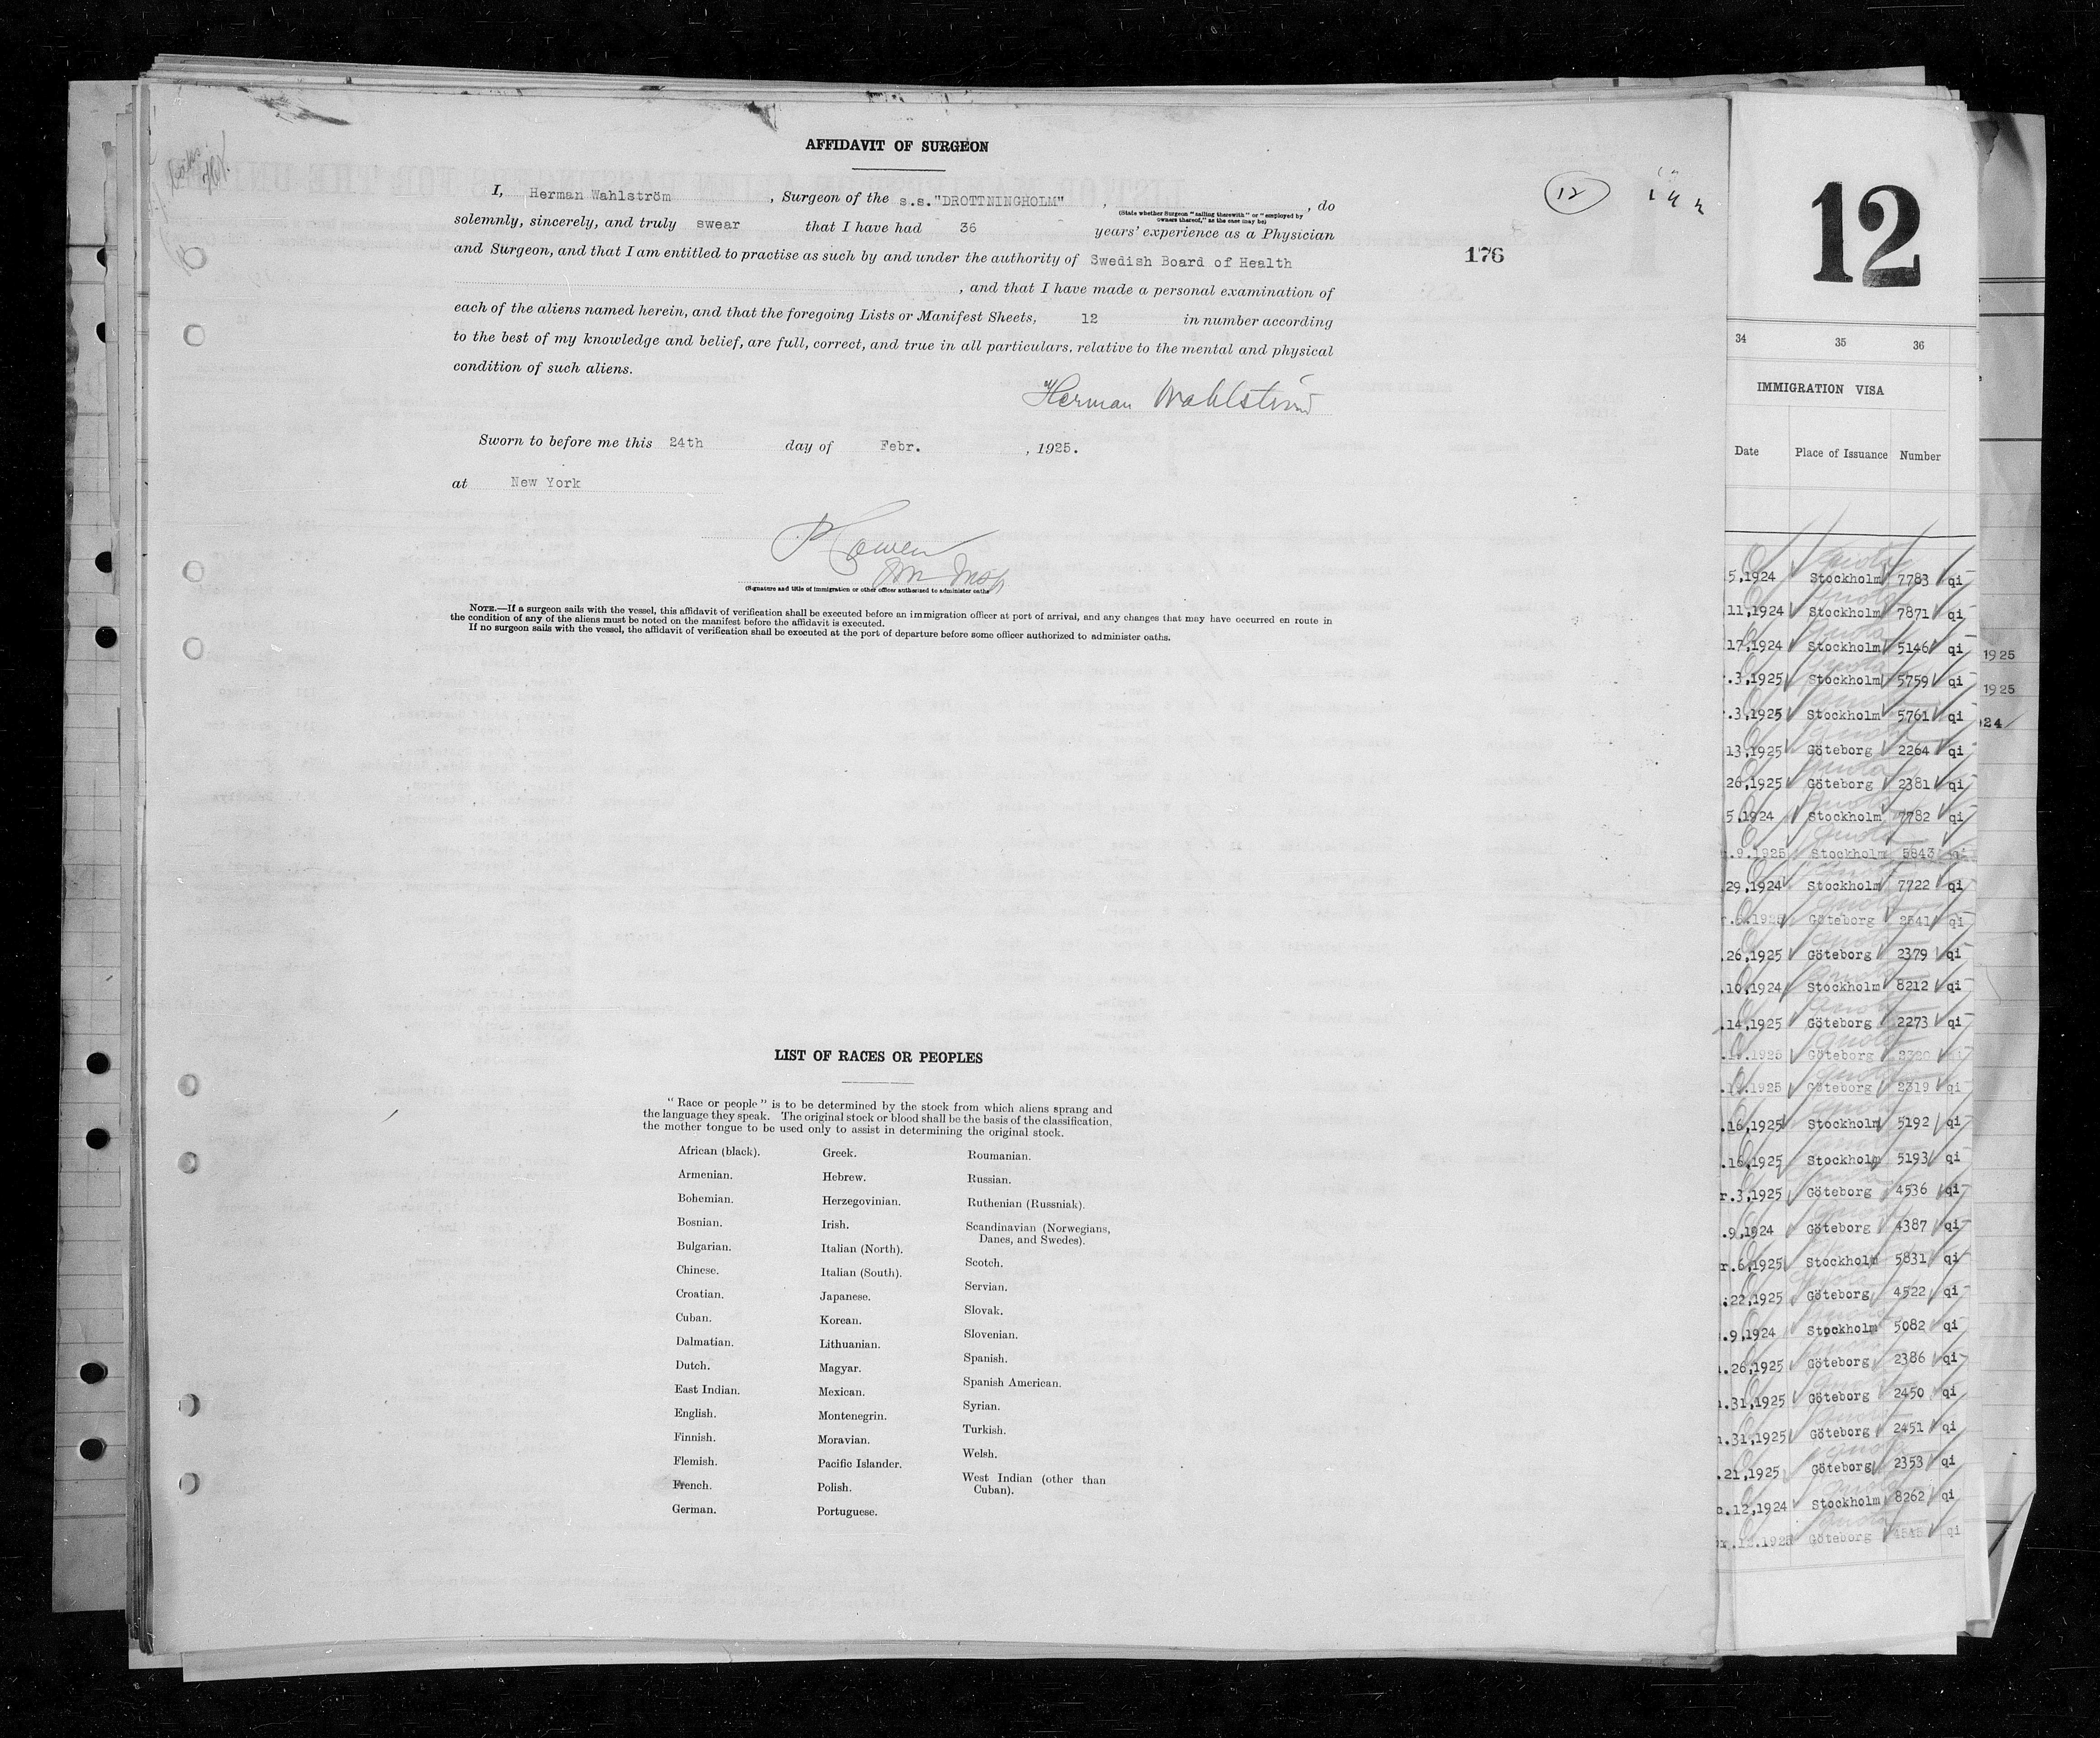 AFFIDAVIT OF SURGEON
I, Herman Wahlström, Surgeon of the s.s."DROTTNINGHOLM", , do
(State whether Surgeon "sailing therewith" or "employed by
owners thereof," as the case may be)
solemnly, sincerely, and truly swear that I have had 36 years' experience as a Physician
and Surgeon, and that I am entitled to practise as such by and under the authority of Swedish Board of Health
, and that I have made a personal examination of
each of the aliens named herein, and that the foregoing Lists or Manifest Sheets, 12 in number according
to the best of my knowledge and belief, are full, correct, and true in all particulars, relative to the mental and physical
condition of such aliens.
Herman Wahlström
Sworn to before me this 24th day of Febr. , 1925.
at New York
(Signature and title of immigration or other officer authorized to administer oaths
NOTE.—If a surgeon sails with the vessel, this affidavit of verification shall be executed before an immigration officer at port of arrival, and any changes that may have occurred en route in
the condition of any of the aliens must be noted on the manifest before the affidavit is executed.
If no surgeon sails with the vessel, the affidavit of verification shall be executed at the port of departure before some officer authorized to administer oaths.
12
176
LIST OF RACES OR PEOPLES
"Race or people" is to be determined by the stock from which aliens sprang and
the language they speak. The original stock or blood shall be the basis of the classification,
the mother tongue to be used only to assist in determining the original stock.
African (black).
Armenian.
Bohemian.
Bosnian.
Bulgarian.
Chinese.
Croatian.
Cuban.
Dalmatian.
Dutch.
East Indian.
English.
Finnish.
Flemish.
French.
German.
Greek.
Hebrew.
Herzegovinian.
Irish.
Italian (North).
Italian (South).
Japanese.
Korean.
Lithuanian.
Magyar.
Mexican.
Montenegrin.
Moravian.
Pacific Islander.
Polish.
Portuguese.
Roumanian.
Russian.
Ruthenian (Russniak).
Scandinavian (Norwegians,
Danes, and Swedes).
Scotch.
Servian.
Slovak.
Slovenian.
Spanish.
Spanish American.
Syrian.
Turkish.
Welsh.
West Indian (other than
Cuban).
12
34 35 36
IMMIGRATION VISA
Date Place of Issuance Number
5,1924 Stockholm 7783 qi
11,1924 Stockholm 7871 qi
17,1924 Stockholm 5146 qi
.3,1925 Stockholm 5759 qi
.3,1925 Stockholm 5761 qi
13,1925 Göteborg 2264 qi
26,1925 Göteborg 2381 qi
5,1924 Stockholm 7782 qi
.9.1925 Stockholm 5843 qi
29,1924 Stockholm 7722 qi
1925 Göteborg 2541 qi
.26,1925 Göteborg 2379 qi
.10,1924 Stockholm 8212 qi
.14,1925 Göteborg 2273 qi
1925 Göteborg 2320 qi
.19.1925 Göteborg 2319 qi
.16,1925 Stockholm 5192 qi
.16,1925 Stockholm 5193 qi
r.3,1925 Göteborg 4536 qi
.9,1924 Göteborg 4387 qi
r.6,1925 Stockholm 5831 qi
.22,1925 Göteborg 4522 qi
.9,1924 Stockholm 5082 qi
.26,1925 Göteborg 2386 qi
.31,1925 Göteborg 2450 qi
.31,1925 Göteborg 2451 qi
.21,1925 Göteborg 2353 qi
c.12,1924 Stockholm 8262 qi
.12.1925 Göteborg 4545 qi
1925
1925
924